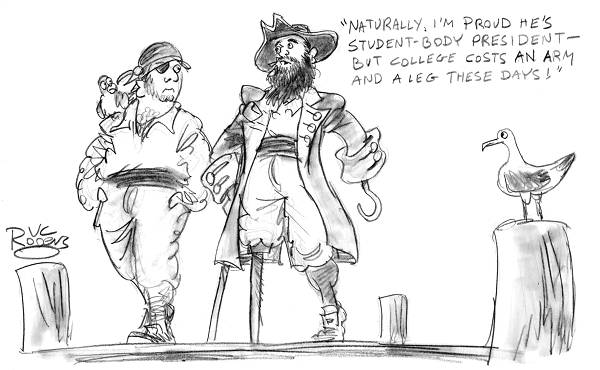 "NATURALLY, I'M PROUD HE'S
STUDENT-BODY PRESIDENT—
BUT COLLEGE COSTS AN ARM
AND A LEG THESE DAYS!"
VC
ROGERS